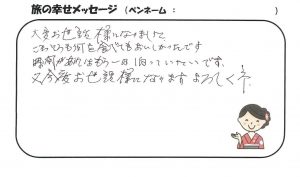 旅の幸せメッセージ（ペンネーム：　　　　　　　）
大変お世話様になりました。
これっても何を食べてもおいしかったです
時間があればもう一泊していたいです。
又今度お世話様になりますよろしくネ